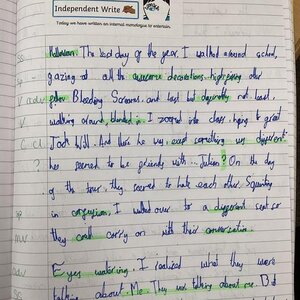 Independent Write
Today we have written an internal monologue to entertain.
Halloween. The best day of the year. I walked around school,
gazing at all the awesome decorations, high
Bleeding Screams and last but not least,
walking around, I zoomed into class, hoping to greet
Jack Will. And there he was, except something was different.
he seemed to be friends with... Julian? On the day
of the tour, they seemed to hate each other. Squinting
in confusion, I walked over to a different seat so
they could carry on with their conversation.
Eyes watering, I realised what they were
talking about. Me. They was talking about me. But